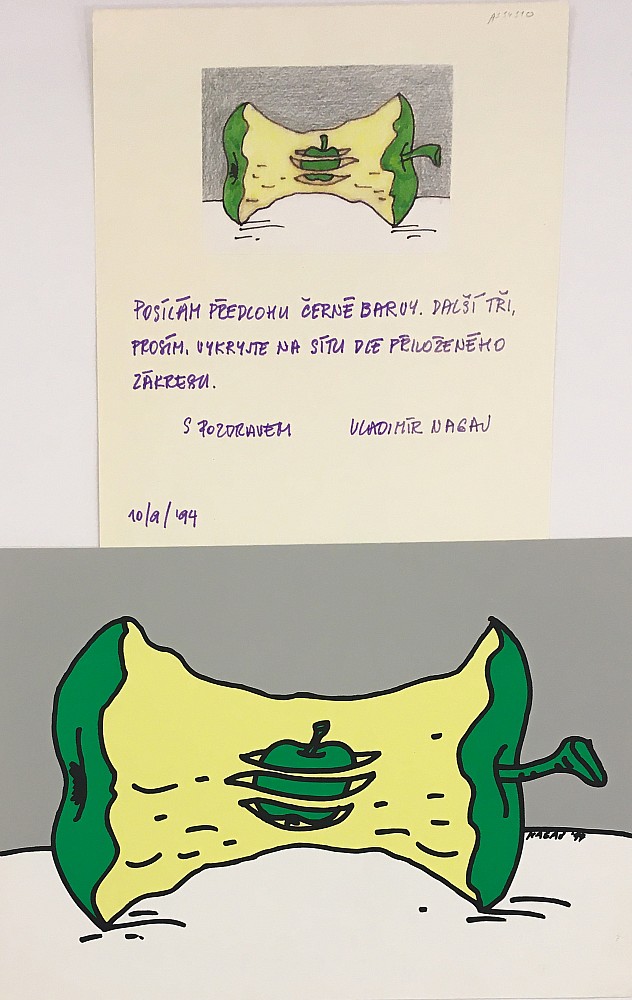 POSÍLÁM PŘEDLOHU ČERNÉ BARVY. DALŠÍ TŘI,
PROSÍM, VYKRYJTE NA SÍTU DLE PŘILOŽENÉHO
ZÁKRESU.
S POZDRAVEM VLADIMÍR NAGAJ
10/9/'94
NAGAJ '94